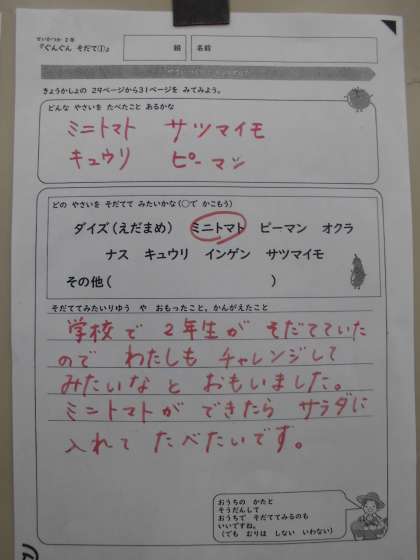 せいかつか 2年
『ぐんぐん そだて①』
組
名前
きょうかしょの 29ページから31ページを みてみよう。
どんな やさいを たべたこと あるかな
ミニトマト サツマイモ
キュウリ ピーマン
どの やさいを そだてて みたいかな(○で かこもう)
ダイズ(えだまめ) ミニトマト ピーマン オクラ
ナス キュウリ インゲン サツマイモ
その他( )
そだててみたいりゆう や おもったこと、かんがえたこと
学校で 2年生が そだてていた
ので わたしも チャレンジして
みたいなと おもいました。
ミニトマトが できたら サラダに
入れて たべたいです。
おうちの かたと
そうだんして
おうちで そだててみるのも
いいですね。
(でも おりは しない いわない)